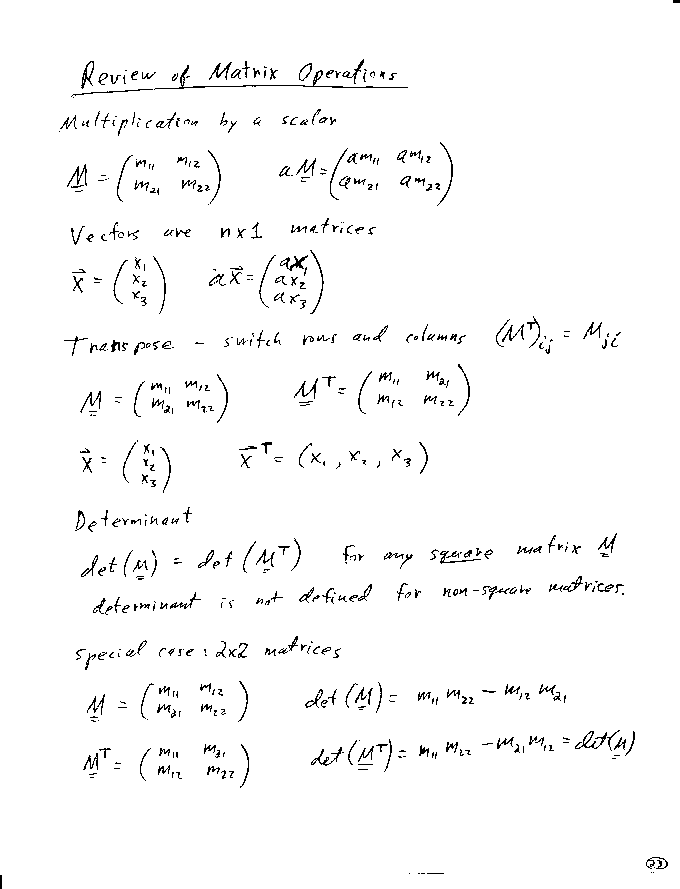 Review of Matrix Operations
Multiplication by a scalar
M = (m₁₁ m₁₂ / m₂₁ m₂₂) a M = (am₁₁ am₁₂ / am₂₁ am₂₂)
Vectors are n x 1 matrices
x⃗ = (x₁ / x₂ / x₃) a x⃗ = (ax₁ / ax₂ / ax₃)
Transpose - switch rows and columns (Mᵀ)ᵢⱼ = Mⱼᵢ
M = (m₁₁ m₁₂ / m₂₁ m₂₂) Mᵀ = (m₁₁ m₂₁ / m₁₂ m₂₂)
x⃗ = (x₁ / x₂ / x₃) x⃗ᵀ = (x₁, x₂, x₃)
Determinant
det(M) = det(Mᵀ) for any square matrix M
determinant is not defined for non-square matrices.
special case: 2x2 matrices
M = (m₁₁ m₁₂ / m₂₁ m₂₂) det(M) = m₁₁ m₂₂ - m₁₂ m₂₁
Mᵀ = (m₁₁ m₂₁ / m₁₂ m₂₂) det(Mᵀ) = m₁₁ m₂₂ - m₂₁ m₁₂ = det(M)
23